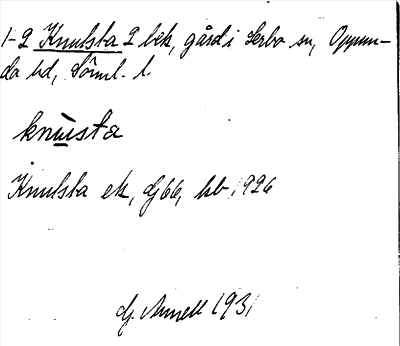 1-2 Knutsta 2 bek, gård i Lerbo sn, Oppun-
da hd, Söml. l.
knùsta
Knutsta ek, Gj66, hb 1926
G. Amell 1931